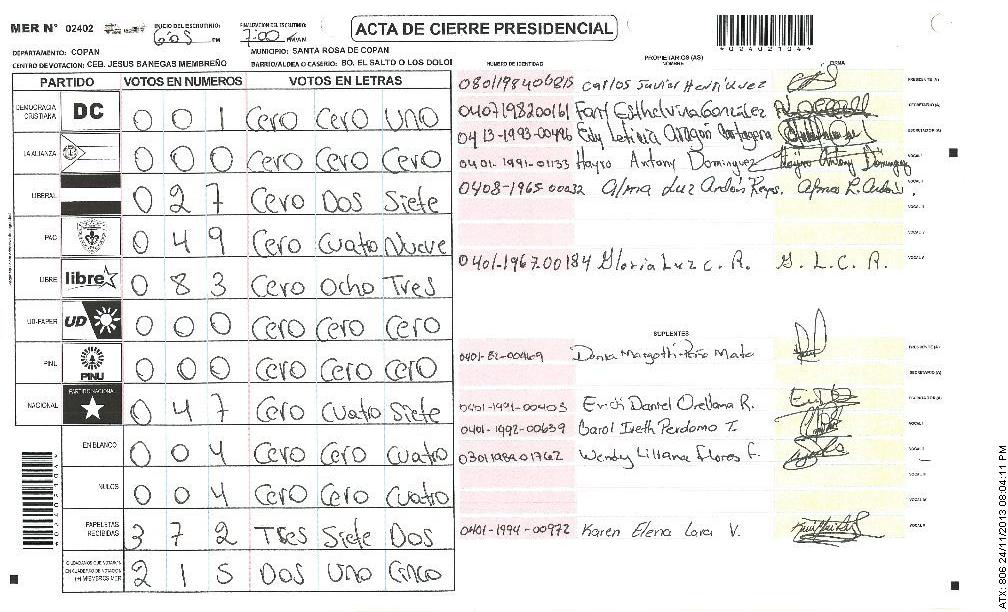 MER N° 02402 INICIO DEL ESCRUTINIO: 6:05 PM FINALIZACION DEL ESCRUTINIO: 7:00 PM/AM ACTA DE CIERRE PRESIDENCIAL
*02402104*
DEPARTAMENTO: COPAN MUNICIPIO: SANTA ROSA DE COPAN
CENTRO DE VOTACION: CEB. JESUS BANEGAS MEMBREÑO BARRIO/ALDEA O CASERIO: BO. EL SALTO O LOS DOLOI
PARTIDO VOTOS EN NUMEROS VOTOS EN LETRAS
DEMOCRACIA CRISTIANA DC 0 0 1 Cero Cero Uno
LA ALIANZA 0 0 0 Cero Cero Cero
LIBERAL 0 2 7 Cero Dos Siete
PAC 0 4 9 Cero Cuatro Nueve
LIBRE libre 0 8 3 Cero Ocho Tres
UD-FAPER UD 0 0 0 Cero Cero Cero
PINU PINU 0 0 0 Cero Cero Cero
NACIONAL PARTIDO NACIONAL 0 4 7 Cero Cuatro Siete
EN BLANCO 0 0 4 Cero Cero Cuatro
NULOS 0 0 4 Cero Cero Cuatro
PAPELETAS RECIBIDAS 3 7 2 Tres Siete Dos
CIUDADANOS QUE VOTARON EN CUADERNO DE VOTACION (+) MIEMBROS MER 2 1 5 Dos Uno Cinco
PROPIETARIOS (AS)
NUMERO DE IDENTIDAD NOMBRE FIRMA
Carlos Javier Henriquez PRESIDENTE (A)
0407198200161 González SECRETARIO (A)
0413-1993-00496 Edy Leticia Aragon Cartagena ESCRUTADOR (A)
0401-1991-01133 Hayro Antony Dominguez Hayro Antony Dominguez VOCAL I
0408-1965-00032 Alma Luz Ardón Reyes. Alma L. Ardón VOCAL II
0401-1967-00184 Gloria Luz C. R. G. L. C. R. VOCAL V
SUPLENTES
0401-82-00469 Dania Margoth Peña Mata PRESIDENTE (A)
SECRETARIO (A)
0401-1991-00403 Erick Daniel Orellana R. ESCRUTADOR (A)
0401-1992-00639 Carol Iveth Perdomo T. VOCAL I
0301198901762 Wendy Liliana Flores F. VOCAL II
0401-1994-00972 Karen Elena Lara V. VOCAL V
ATX: 806 24/11/2013 08:04:11 PM